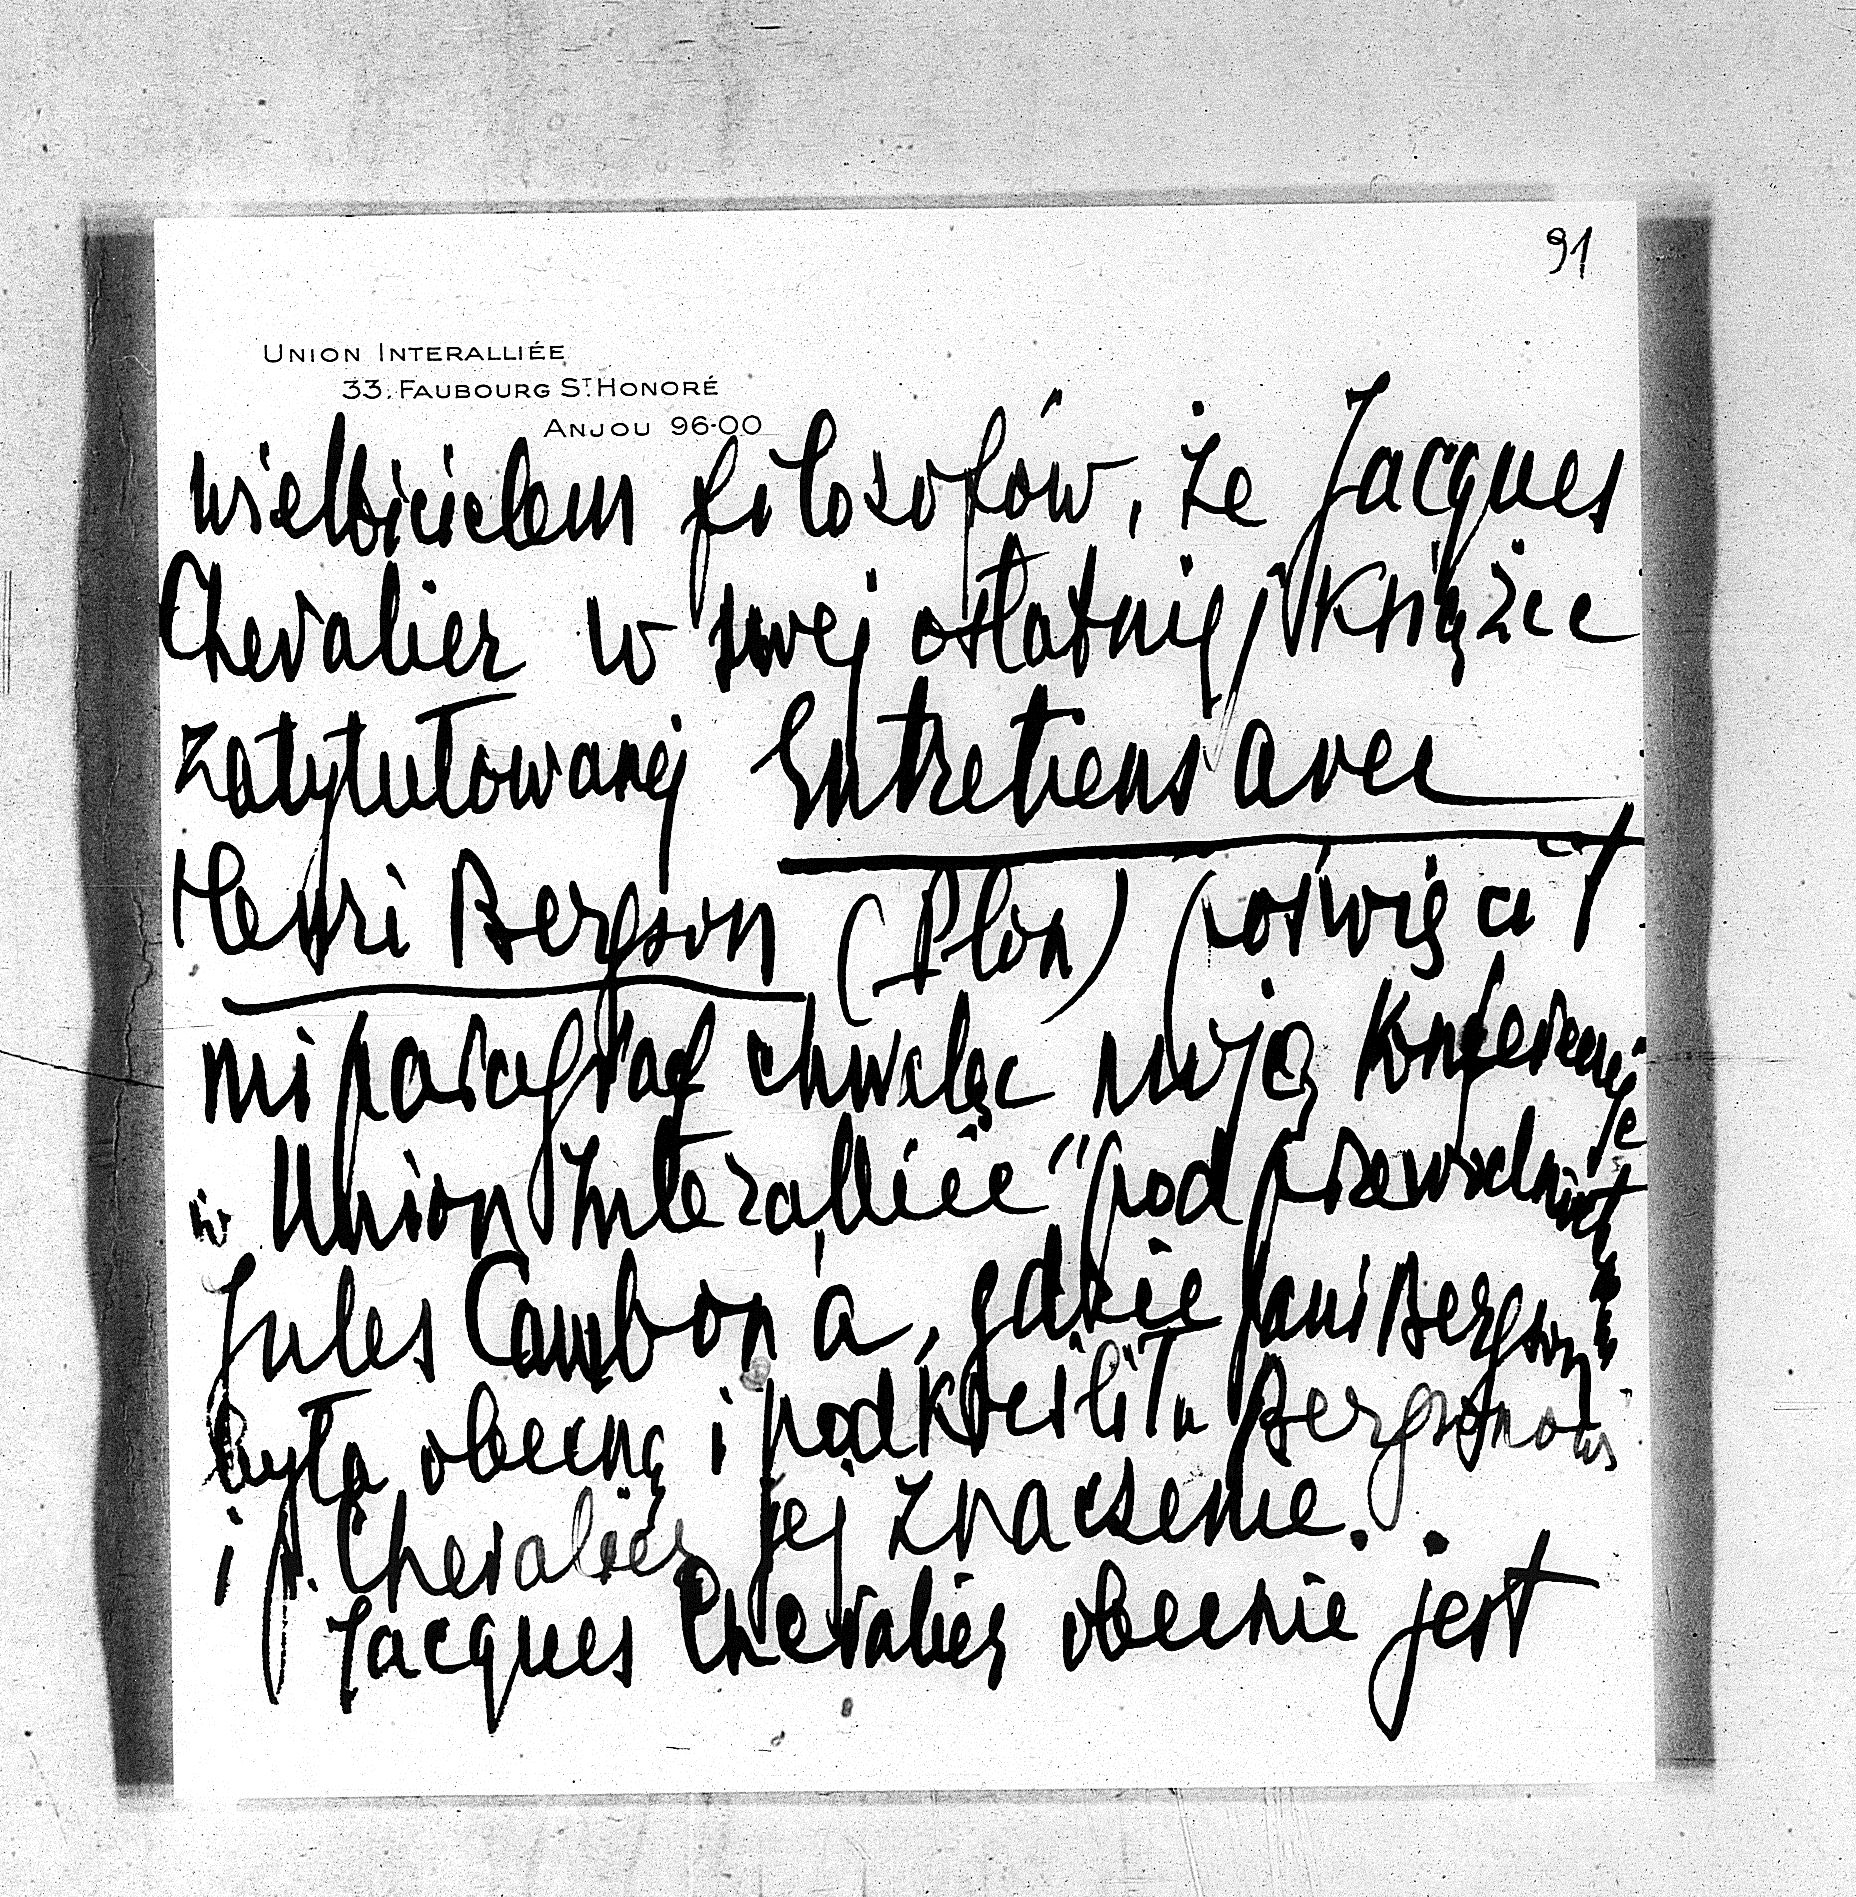 91
UNION INTERALLIÉE
33. FAUBOURG ST. HONORÉ
ANJOU 96-00
wielbicielem filozofów, że Jacques
Chevalier w swej ostatniej książce
zatytułowanej Entretiens avec
Henri Bergson (Plon) poświęcił
mi paragraf chwaląc moją konferencję
w "Union Interalliée" pod przewodnict
Jules Cambon'a, gdzie pani Bergson
była obecną i podkreśliła Bergsonowi
i p. Chevalier jej znaczenie.
Jacques Chevalier obecnie jest